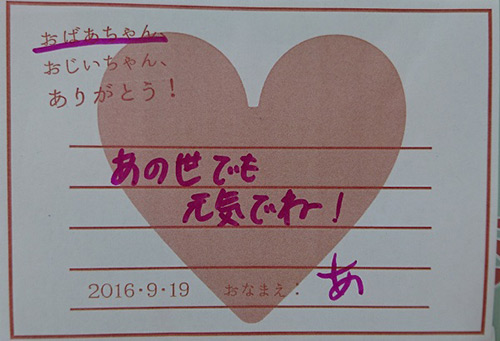 おばあちゃん、
おじいちゃん、
ありがとう！
あの世でも
元気でねー！
2016・9・19 おなまえ： あ